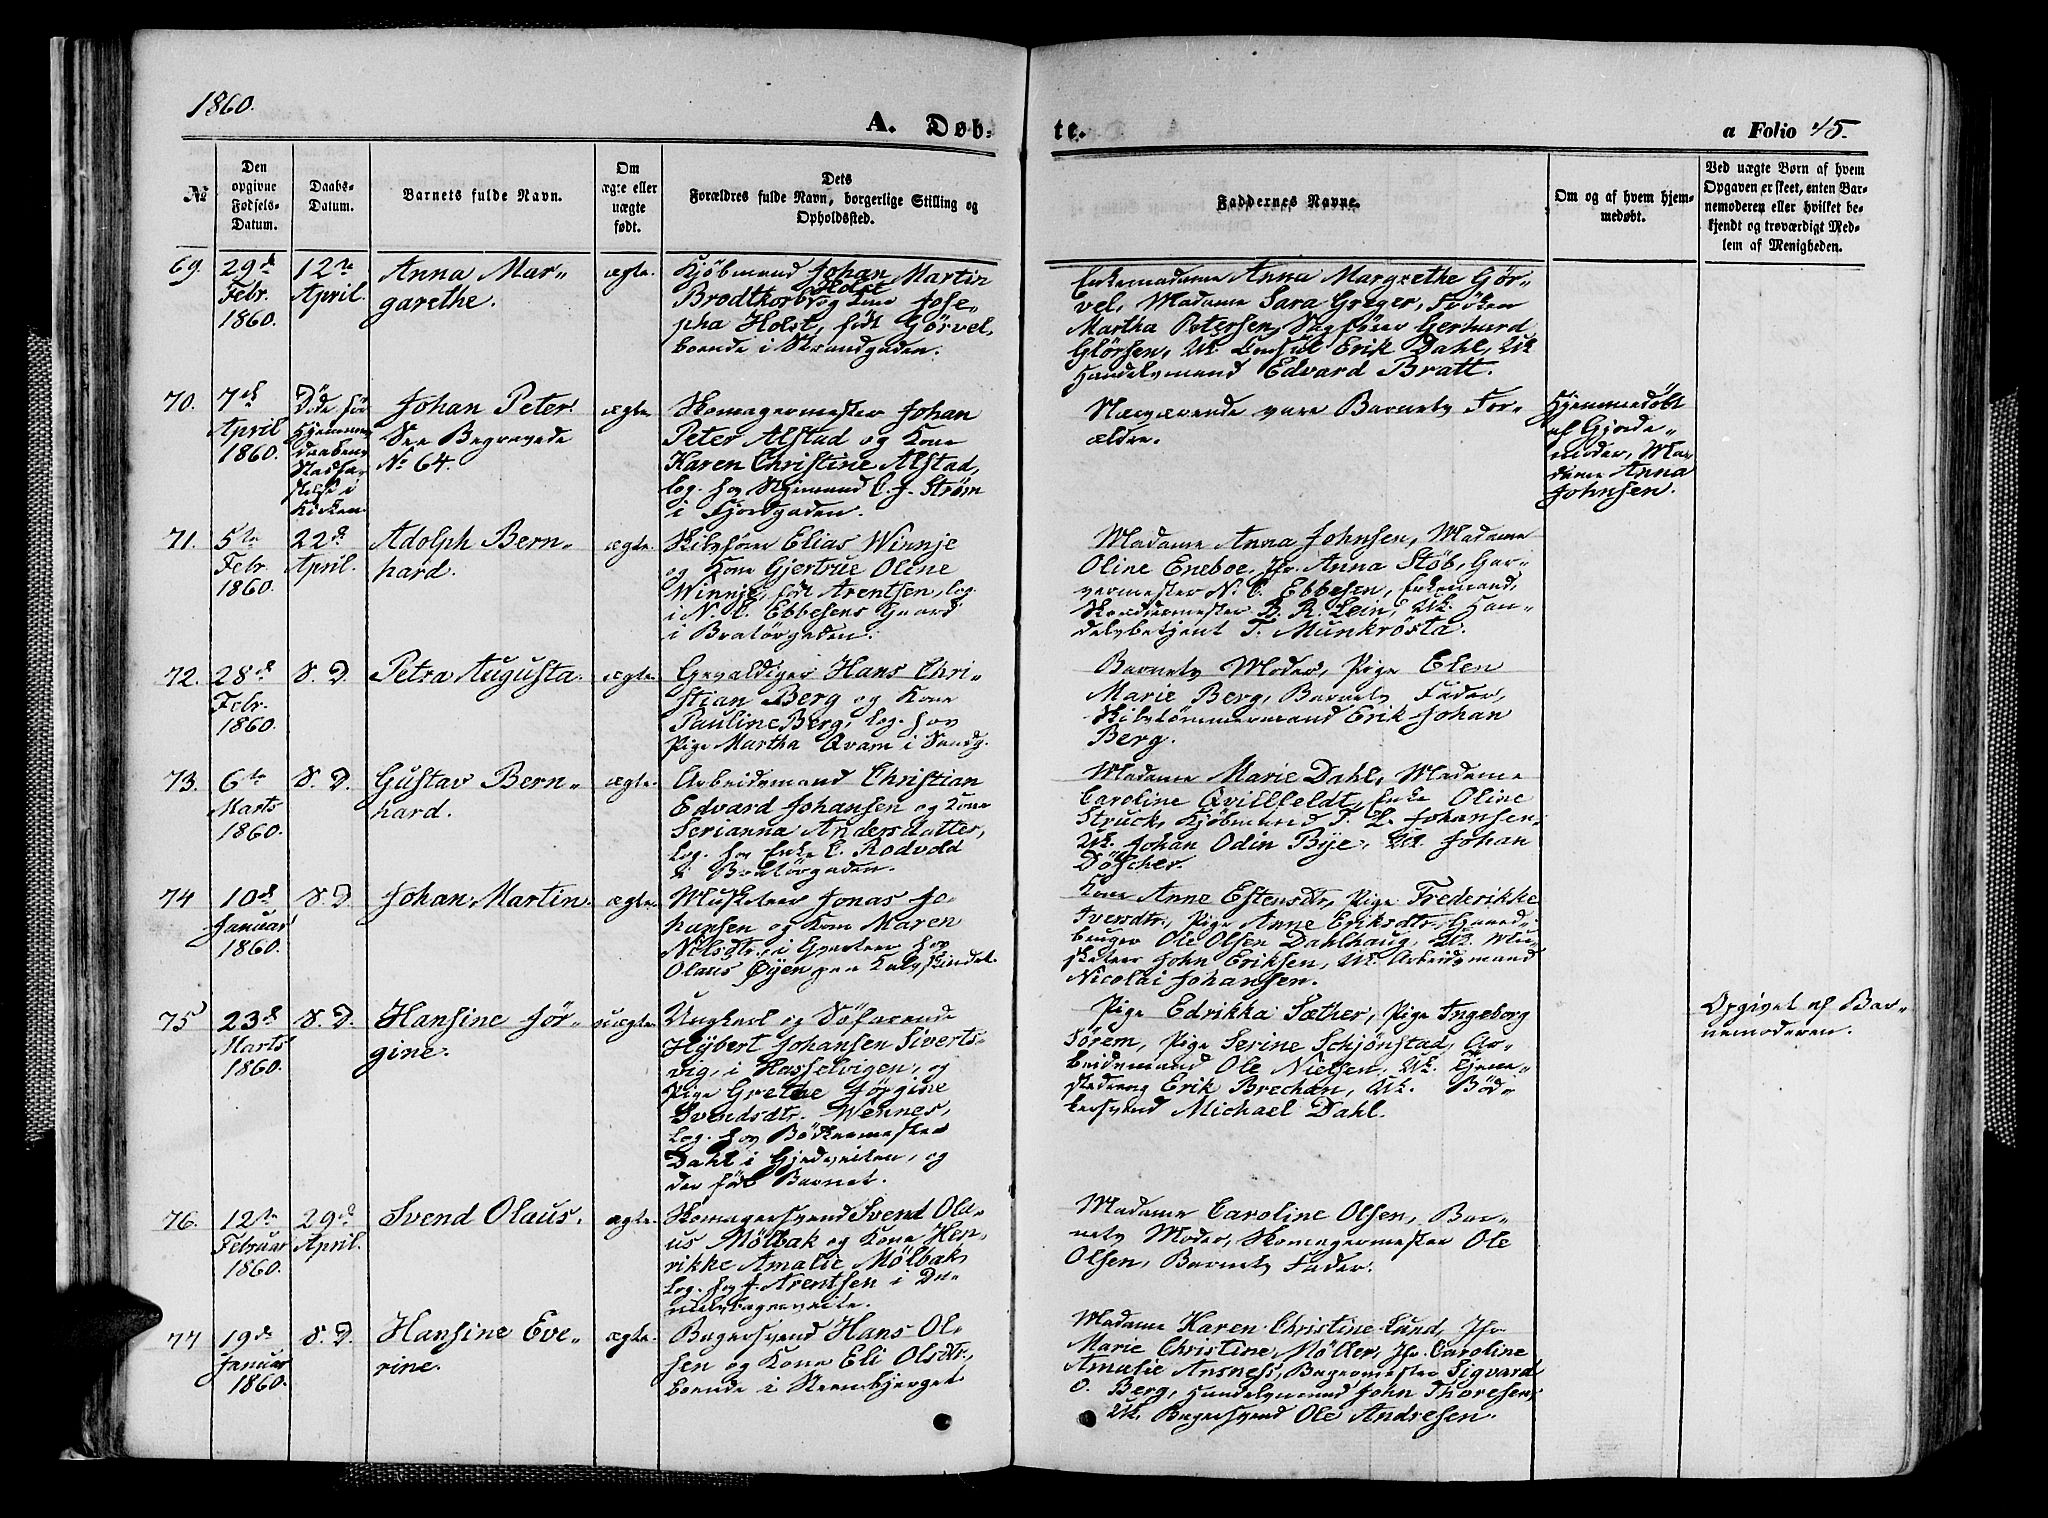 1860.
A. Døb-
te.
a Folio 45.
№
Den
opgivne
Fødsels-
Datum.
Daabs-
Datum.
Barnets fulde Navn.
Om
ægte eller
uægte
født.
Dets
Forældres fulde Navn, borgerlige Stilling og
Opholdssted.
Faddernes Navne.
Om og af hvem hjem-
medøbt.
Ved uægte Børn af hvem
Opgaven er skeet, enten Bar-
nemoderen eller hvilket be-
kjendt og troværdigt Med-
lem af Menigheden.
69.
29de
Febr.
1860.
12te
April.
Anna Mar-
garethe.
ægte.
Kjøbmand Johan Martin
Brodtkorb Holst og Kone Jose-
pha Holst, født Gjørvel,
boende i Strandgaden.
Enkemadame Anna Margrethe Gjør-
vel, Madame Sara Greger, Frøken
Martha Petersen, Sagfører Gerhard
Glørsen, Uk. Consul Erik Dahl, Uk.
Handelsmand Edvard Bratt.
70.
7de
April
1860.
Døde før
Hjemme-
daabens
Stadfæ-
stelse i
Kirken.
Johan Peter.
See Begravede
No 64.
ægte.
Skomagermester Johan
Peter Alstad og Kone
Karen Christine Alstad,
log. hos C. J. Strøm
i Fjordgaden.
Nærværende vare Barnets For-
ældre.
Hjemmedøbt
af Gjorde-
moder, Ma-
dame Anna
Johnsen.
71.
5te
Febr.
1860.
22de
April.
Adolph Bern-
hard.
ægte.
Skibsfører Elias Winnje
og Kone Gjertrue Oline
Winnje, født Arentsen, log.
i N. C. Ebbesens Gaard
i Bratørgaden.
Madame Anna Johnsen, Madame
Oline Eneboe, Jfr. Anna Støb, Gar-
vermester N. C. Ebbesen, Enkemand,
Skrædermester B. R. Lein, Uk. Han-
delsbetjent T. Munkrøsta.
72.
28de
Febr.
1860.
S. D.
Petra Augusta.
ægte.
Gevaldiger Hans Chri-
stian Berg og Kone
Pauline Berg, log. hos
Pige Martha Qvam i Sandg.
Barnets Moder, Pige Elen
Marie Berg, Barnets Fader,
Skibstømmermand Erik Johan
Berg.
73.
6te
Marts
1860.
S. D.
Gustav Bern-
hard.
ægte.
Arbeidsmand Christian
Edvard Johansen og Kone
Serianna Andersdatter,
log. hos Enke C. Rodvold
i Bratørgaden.
Madame Marie Dahl, Madame
Caroline Qvillfeldt, Enke Oline
Struck, Kjøbmand T. L. Johansen,
Uk. Johan Odin Bye, Uk. Johan
Døscher.
74
10de
Januar
1860.
S. D.
Johan Martin.
ægte.
Musketeer Jonas Jo-
hansen og Kone Maren
Nilsdtr., i Qvarteer hos
Olaus Øyen paa Kalvskindet.
Kone Anne Estensdtr., Pige Frederikke
Iversdtr., Pige Anne Eriksdtr., Gaard-
bruger Ole Olsen Dahlhaug, Uk. Mu-
sketeer John Eriksen, Uk. Arbeidsmand
Nicolai Johansen.
75
23de
Marts
1860.
S. D.
Hansine Jør-
gine.
uægte.
Ungkarl og Søfarende
Hybert Johansen Siverts-
vig, i Hasselvigen, og
Pige Grethe Jørgine
Svendsdtr. Wennes,
log. hos Bødkermester
Dahl i Gjedveiten, og
der født Barnet.
Pige Edrikka Sæther, Pige Ingeborg
Sørem, Pige Serine Schjønstad, Ar-
beidsmand Ole Nielsen, Uk. Tjene-
stedreng Erik Brechan, Uk. Bød-
kersvend Michael Dahl.
Opgivet af Bar-
nemoderen.
76.
12te
Februar
1860.
29de
April.
Svend Olaus.
ægte.
Skomagersvend Svend Ola-
us Mølbak og Kone Hen-
rikke Amalie Mølbak,
log. hos J. Arentsen i Da-
nielsbagerveite.
Madame Caroline Olsen, Bar-
nets Moder, Skomagermester Ole
Olsen, Barnets Fader.
77
19de
Januar
1860.
S. D.
Hansine Eve-
rine.
ægte.
Bagersvend Hans Ol-
sen og Kone Eli Olsdtr.,
boende i Steenbjerget
Madame Karen Christine Lund, Jfr.
Marie Christine Møller, Jfr. Caroline
Amalie Ansness, Bagermester Sigvard
O. Berg, Handelsmand John Thoresen,
Uk. Bagersvend Ole Andresen.